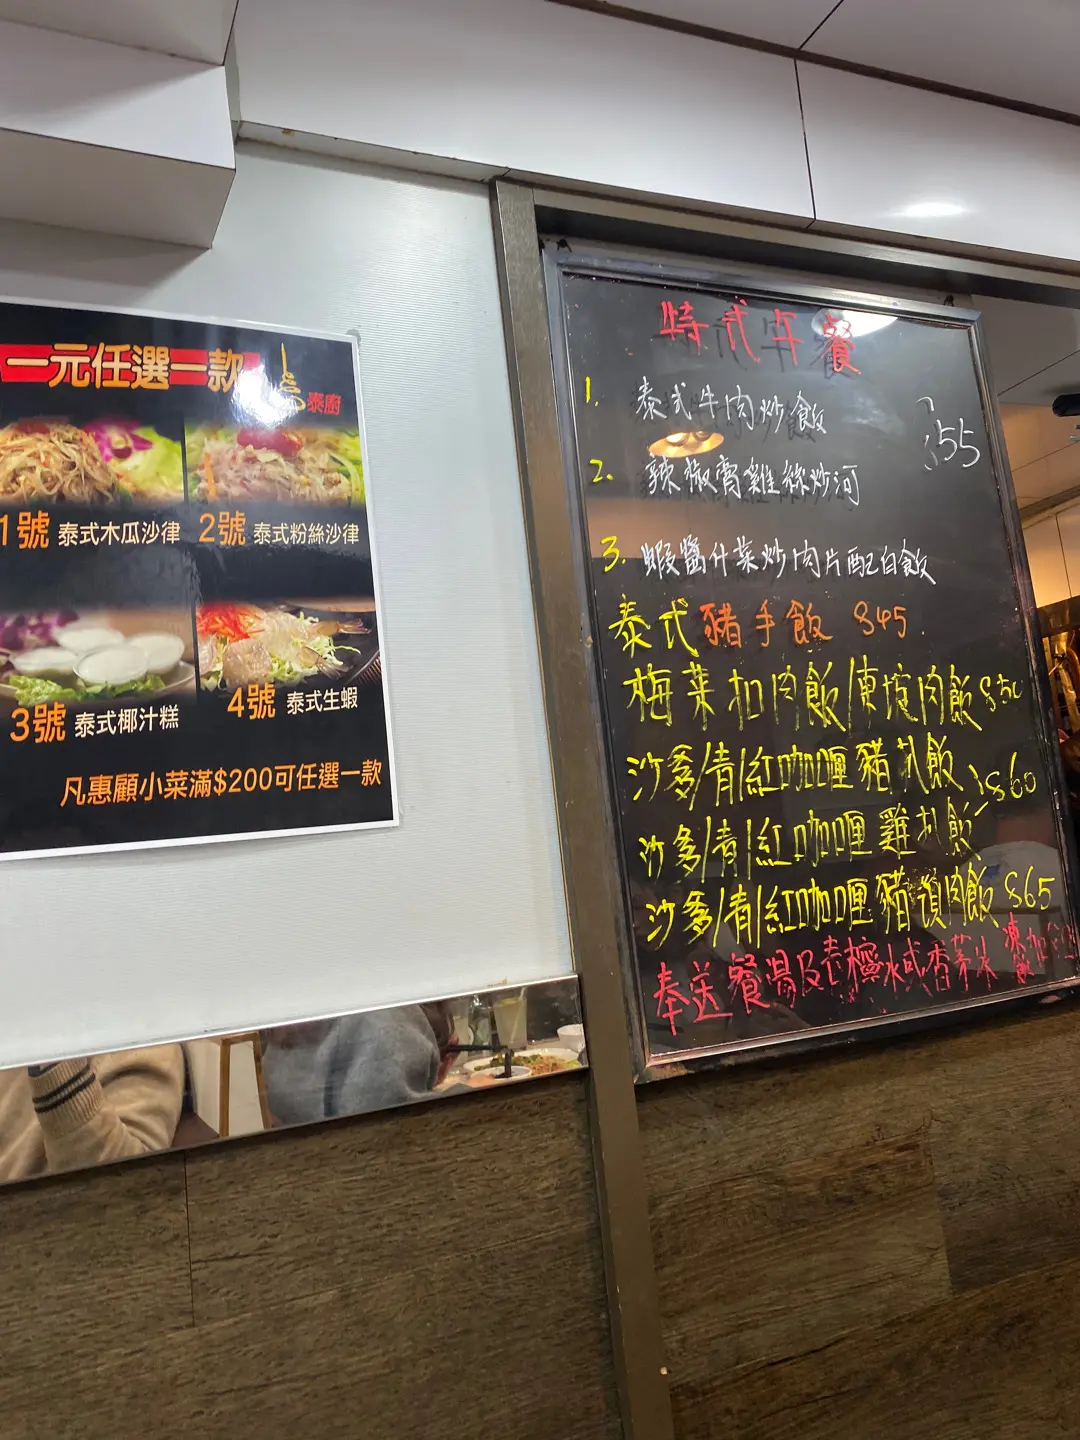 一元任選一款
泰廚
1號 泰式木瓜沙律
2號 泰式粉絲沙律
3號 泰式椰汁糕
4號 泰式生蝦
凡惠顧小菜滿$200可任選一款
特式午餐
1. 泰式牛肉炒飯
55
2. 辣椒膏雞絲炒河
3. 蝦醬什菜炒肉片配白飯
泰式豬手飯 $45
梅菜扣肉飯/東坡肉飯 $50
沙爹/青/紅咖喱豬扒飯
$60
沙爹/青/紅咖喱雞扒飯
沙爹/青/紅咖喱豬頸肉飯 $65
奉送餐湯及 檸水或香茅水 凍飲加